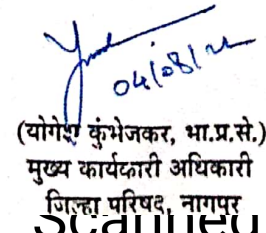 04/08/22
(योगेश कुंभेजकर, भा.प्र.से.)
मुख्य कार्यकारी अधिकारी
जिल्हा परिषद, नागपुर